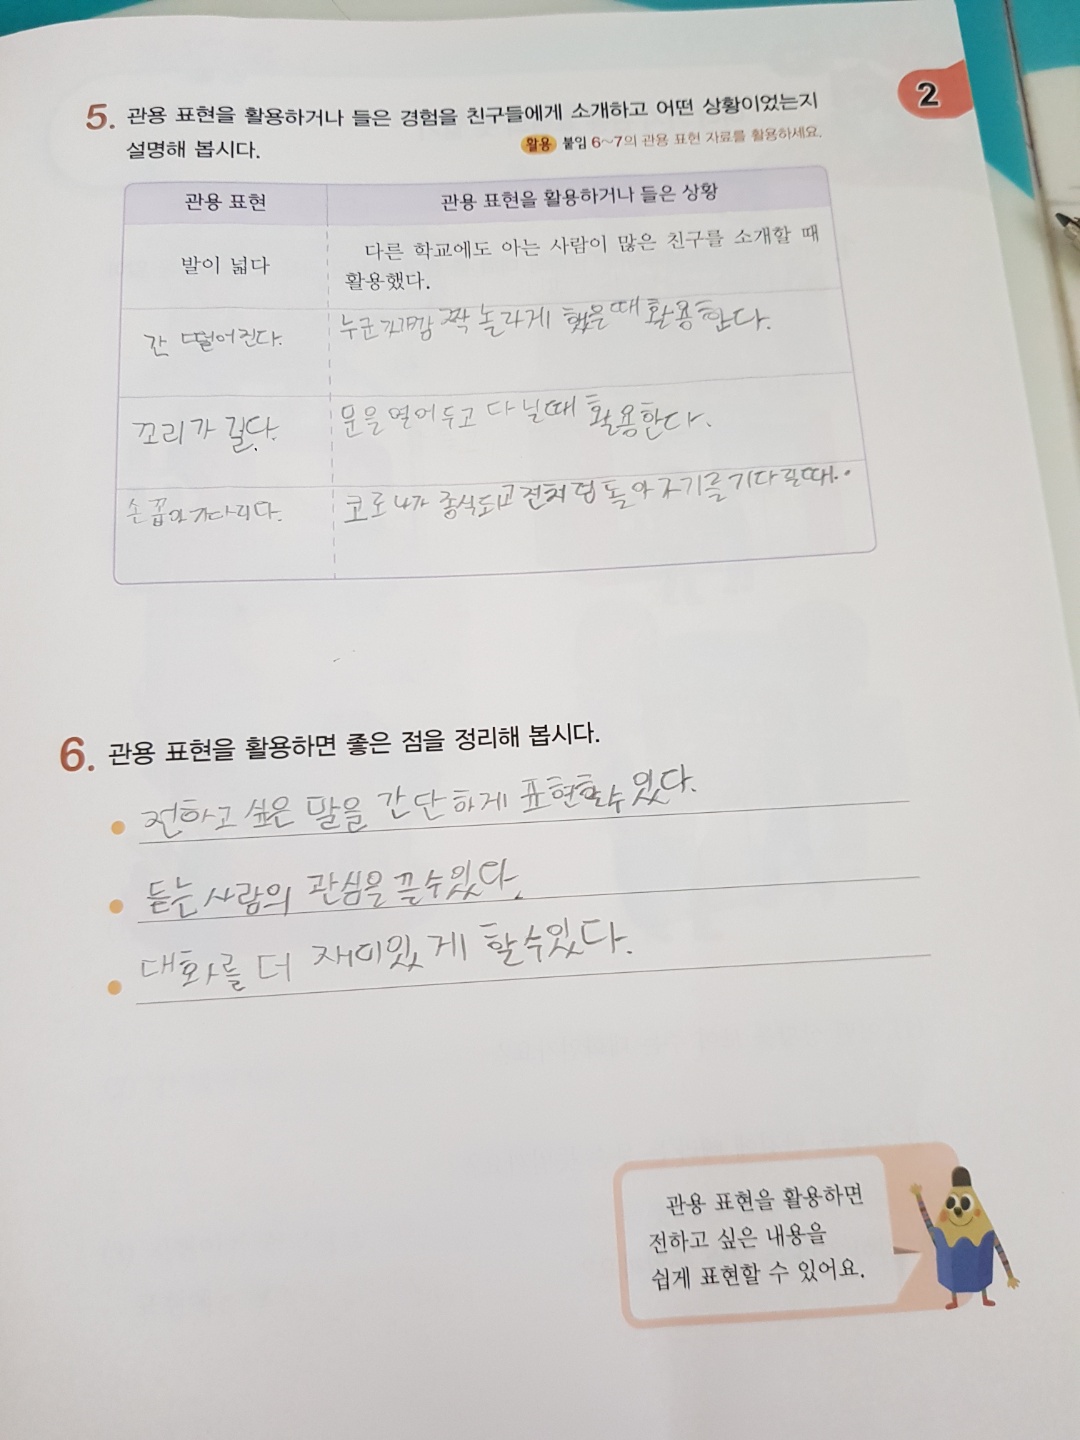 2
5. 관용 표현을 활용하거나 들은 경험을 친구들에게 소개하고 어떤 상황이었는지
설명해 봅시다.
활용 붙임 6~7의 관용 표현 자료를 활용하세요.
관용 표현 관용 표현을 활용하거나 들은 상황
발이 넓다
다른 학교에도 아는 사람이 많은 친구를 소개할 때
활용했다.
간 떨어진다.
누군가깜짝 놀라게 했을때 활용한다.
꼬리가 길다.
문을 열어두고 다닐때 활용한다.
손꼽아기다리다.
코로나가 종식되고 전처럼 돌아가기를 기다릴때.
6. 관용 표현을 활용하면 좋은 점을 정리해 봅시다.
전하고 싶은 말을 간단하게 표현할수있다.
듣는 사람의 관심을 끌수있다.
대화를 더 재미있게 할수있다.
관용 표현을 활용하면
전하고 싶은 내용을
쉽게 표현할 수 있어요.